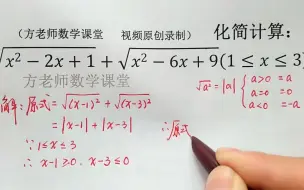 （方老师数学课堂 视频原创录制）化简计算：
√x²−2x+1+√x²−6x+9(1≤x≤3)
方老师数学课堂
解：原式=√(x-1)²+√(x-3)²
=|x-1|+|x-3|
∵1≤x≤3
∴x-1≥0，x-3≤0
√a²=|a|{a>0 =a
a=0 =0
a<0 =-a
∴原式